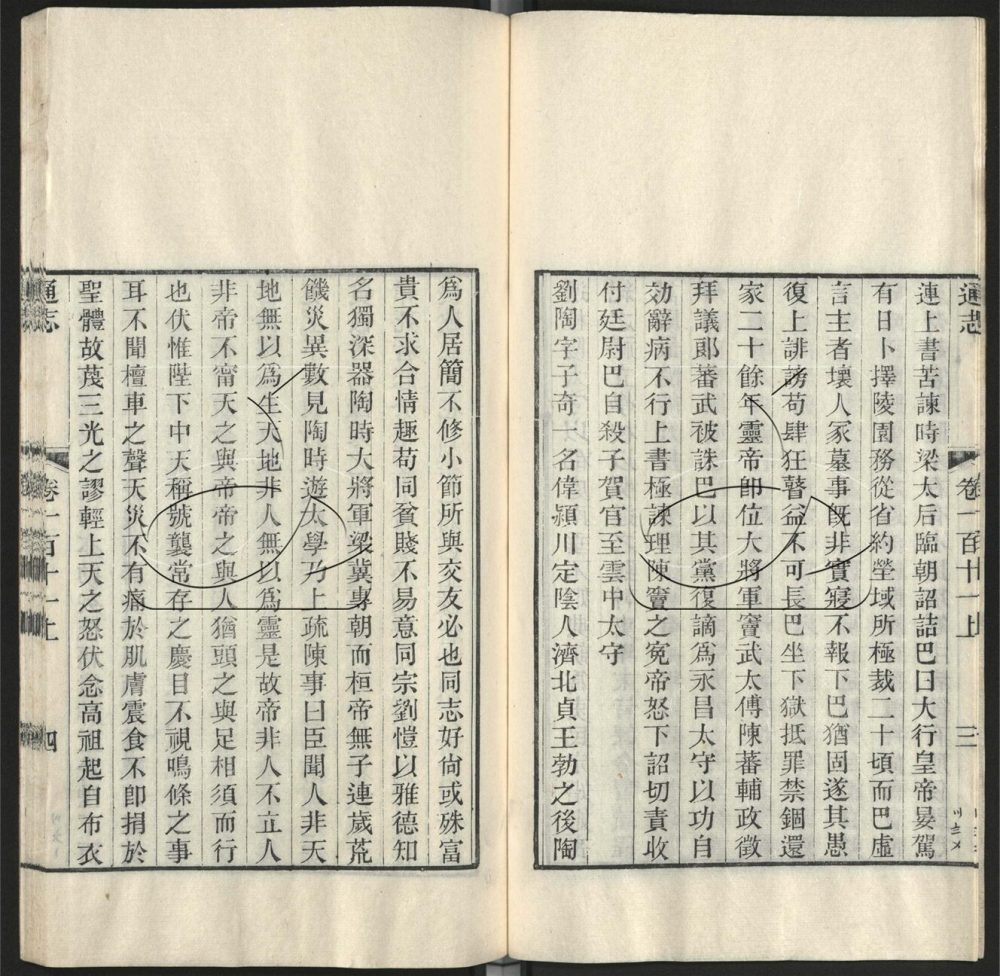 通志
卷一百十一上
三
連上書苦諫時梁太后臨朝詔詰巴曰大行皇帝晏駕
有日卜擇陵園務從省約塋域所極裁二十頃而巴虛
言主者壞人冢墓事既非實寢不報下巴猶固遂其愚
復上誹謗苟肆狂瞽益不可長巴坐下獄抵罪禁錮還
家二十餘年靈帝即位大將軍竇武太傅陳蕃輔政徵
拜議郎蕃武被誅巴以其黨復謫為永昌太守以功自
効辭病不行上書極諫理陳竇之冤帝怒下詔切責收
付廷尉巴自殺子賀官至雲中太守
劉陶字子奇一名偉潁川定陰人濟北貞王勃之後陶
為人居簡不修小節所與交友必也同志好尙或殊富
貴不求合情趣苟同貧賤不易意同宗劉愷以雅德知
名獨深器陶時大將軍梁冀專朝而桓帝無子連歲荒
饑災異數見陶時遊太學乃上疏陳事曰臣聞人非天
地無以為生天地非人無以為靈是故帝非人不立人
非帝不甯天之與帝帝之與人猶頭之與足相須而行
也伏惟陛下中天稱號襲常存之慶目不視鳴條之事
耳不聞檀車之聲天災不有痛於肌膚震食不卽捐於
聖體故蔑三光之謬輕上天之怒伏念高祖起自布衣
通志
卷一百十一上
四